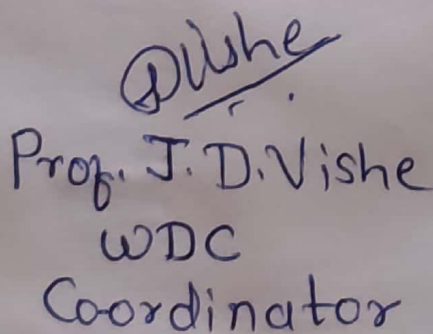 DVishe
Prof. J. D. Vishe
WDC
Coordinator